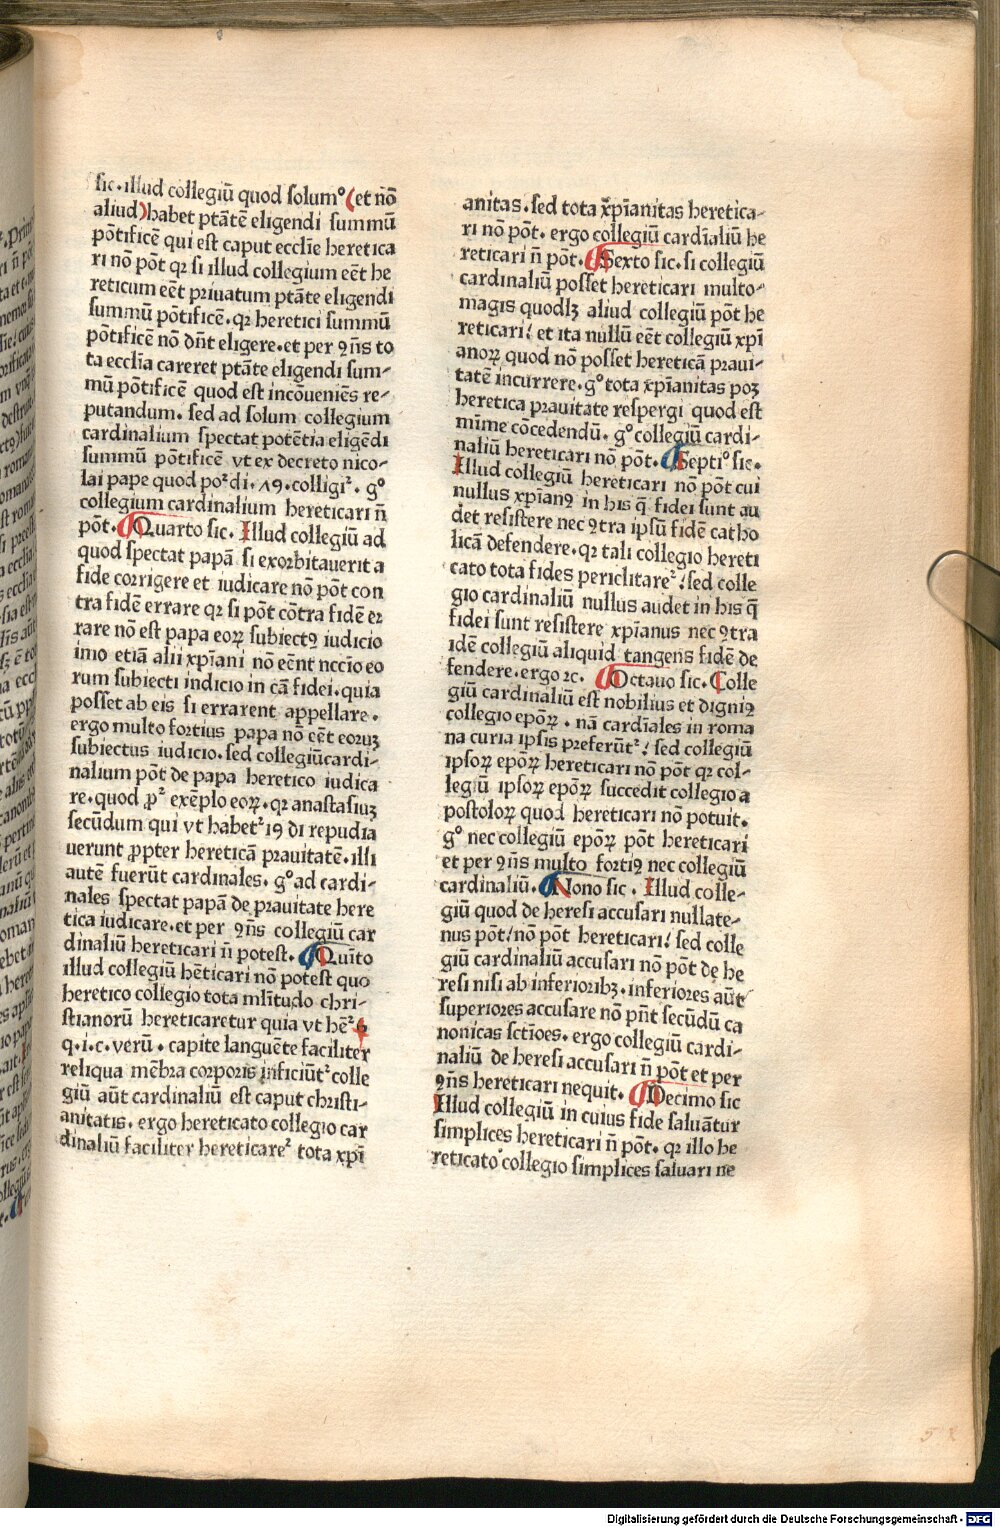 sic. illud collegiū quod solum°(et nō
aliud)habet ptātē eligendi summū
pōtificē qui est caput ecclīe heretica
ri nō pōt qꝛ si illud collegium eēt he
reticum eēt priuatum ptāte eligendi
summū pōtificē. qꝛ heretici summū
pōtificē nō dn̄t eligere. et per ꝯn̄s to
ta ecclīa careret ptāte eligendi sum-
mū pōtificē quod est incōueniēs re-
putandum. sed ad solum collegium
cardinalium spectat potētia eligēdi
summū pōtificē vt ex decreto nico-
lai pape quod poꝛ di. 79. colligiᷣ. g°
collegium cardinalium hereticari n̄
pōt. ¶ Quarto sic. Illud collegiū ad
quod spectat papā si exorbitauerit a
fide corrigere et iudicare nō pōt con
tra fidē errare qꝛ si pōt cōtra fidē er
rare nō est papa eoꝝ subiectꝯ iudicio
imo etiā alii xp̄iani nō eēnt nccīo eo
rum subiecti indicio in cā fidei. quia
posset ab eis si errarent appellare.
ergo multo fortius papa nō eēt eoruꝫ
subiectus iudicio. sed collegiūcardi-
nalium pōt de papa heretico iudica
re. quod ꝓᷣ exēplo eoꝝ. qꝛ anastasiuꝫ
secūdum qui vt habetᷣ 19 di repudia
uerunt ꝓpter hereticā prauitatē. illi
autē fuerūt cardinales. g° ad cardi-
nales spectat papā de prauitate here
tica iudicare. et per ꝯn̄s collegiū car
dinaliū hereticari n̄ potest. ¶ Quīto
illud collegiū hēticari nō potest quo
heretico collegio tota ml̄itudo chri-
stianorū hereticaretur quia vt hēᷣ 6
q. i. c. verū. capite languēte faciliter
reliqua mēbra corporis inficiūtᷣ colle
giū aūt cardinaliū est caput christi-
anitatis. ergo hereticato collegio car
dinaliū faciliter hereticareᷣ tota xp̄i
anitas. sed tota xp̄ianitas heretica-
ri nō pōt. ergo collegiū cardīaliū he
reticari n̄ pōt. ¶ Sexto sic. si collegiū
cardinaliū posset hereticari multo-
magis quodlꝫ aliud collegiū pōt he
reticari: et ita nullū eēt collegiū xp̄i
anoꝝ quod nō posset hereticā praui-
tatē incurrere. g° tota xp̄ianitas poꝫ
heretica prauitate respergi quod est
mīme cōcedendū. g° collegiū cardi-
naliū hereticari nō pōt. ¶ Septi° sic.
Illud collegiū hereticari nō pōt cui
nullus xp̄ianꝯ in his q̄ fidei sunt au
det resistere nec ꝯtra ipsū fidē catho
licā defendere. qꝛ tali collegio hereti
cato tota fides periclitareᷣ: sed colle
gio cardinaliū nullus audet in his q̄
fidei sunt resistere xp̄ianus nec ꝯtra
idē collegiū aliquid tangens fidē de
fendere. ergo ⁊c. ¶ Octauo sic. Colle
giū cardinaliū est nobilius et digniꝯ
collegio ep̄oꝝ. nā cardīales in roma
na curia ipsis preferūtᷣ: sed collegiū
ipsoꝝ ep̄oꝝ hereticari nō pōt qꝛ col-
legiū ipsoꝝ ep̄oꝝ succedit collegio a
postoloꝝ quod hereticari nō potuit.
g° nec collegiū ep̄oꝝ pōt hereticari
et per ꝯn̄s multo fortiꝯ nec collegiū
cardinaliū. ¶ Nono sic. Illud colle-
giū quod de heresi accusari nullate-
nus pōt: nō pōt hereticari: sed colle
giū cardinaliū accusari nō pōt de he
resi nisi ab inferioribꝫ. inferiores aūt
superiores accusare nō pn̄t secūdū ca
nonicas sctīoes. ergo collegiū cardi-
naliū de heresi accusari n̄ pōt et per
ꝯn̄s hereticari nequit. ¶ Decimo sic
Illud collegiū in cuius fide saluātur
simplices hereticari n̄ pōt. qꝛ illo he
reticato collegio simplices saluari ne
Digitalisierung gefördert durch die Deutsche Forschungsgemeinschaft - DFG